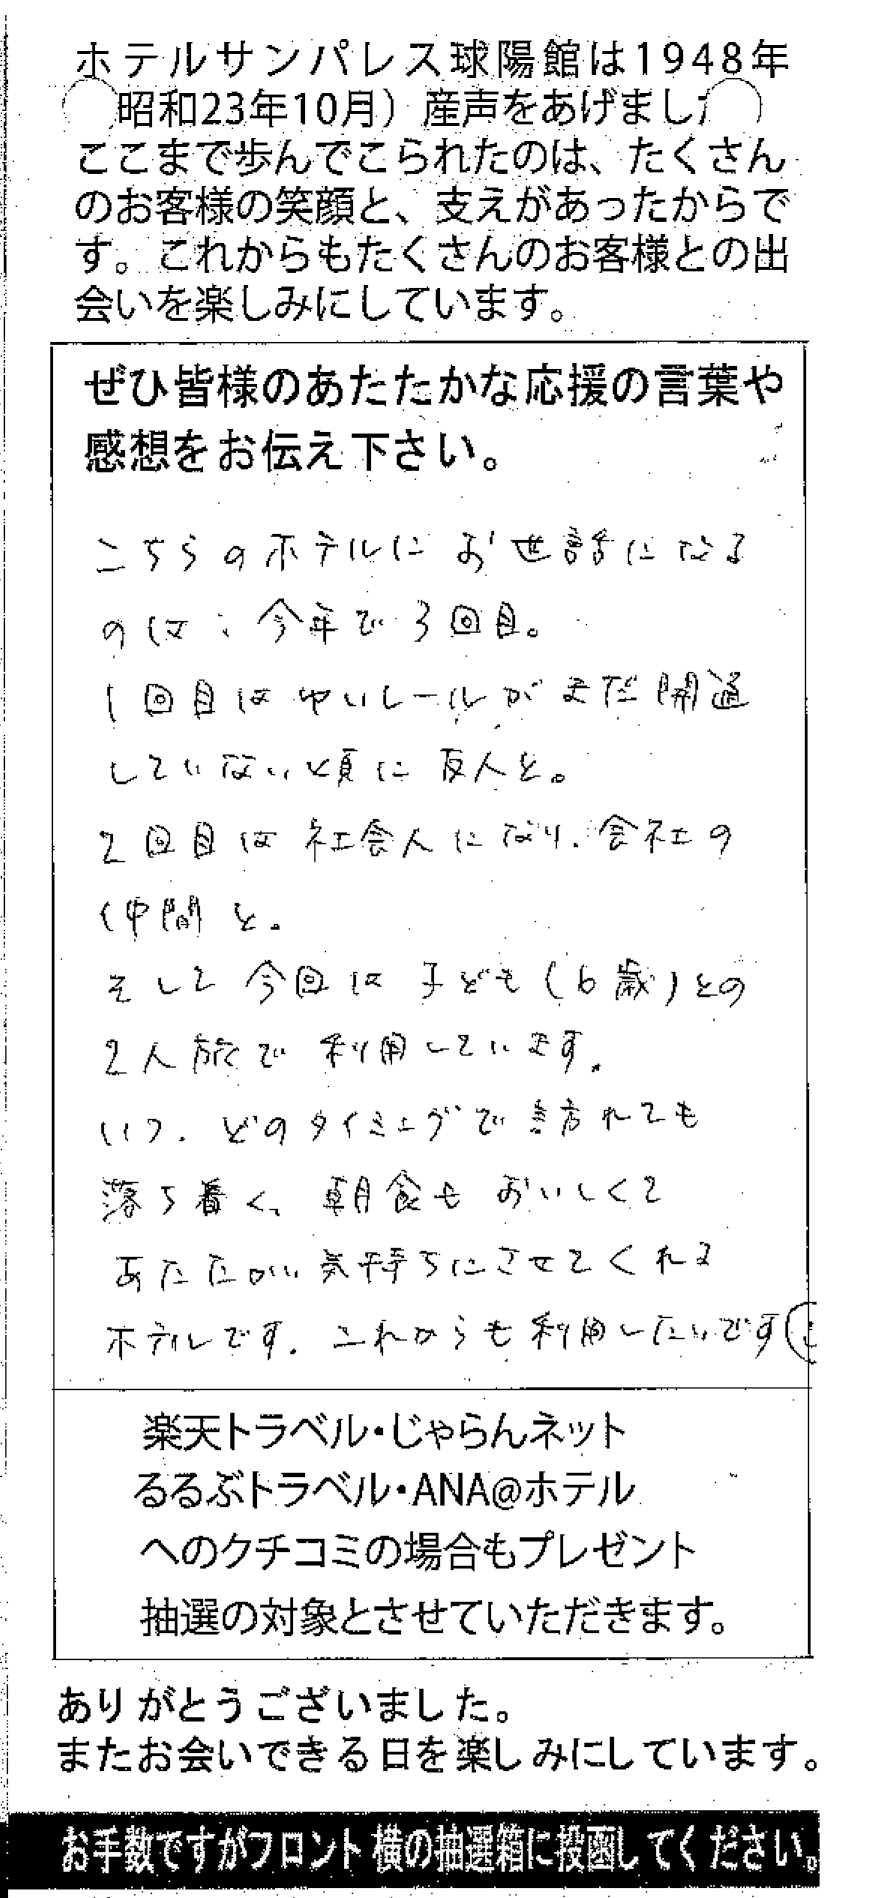 ホテルサンパレス球陽館は1948年
昭和23年10月）産声をあげました
ここまで歩んでこられたのは、たくさん
のお客様の笑顔と、支えがあったからで
す。これからもたくさんのお客様との出
会いを楽しみにしています。
ぜひ皆様のあたたかな応援の言葉や
感想をお伝え下さい。
こちらのホテルにお世話になる
のは、今年で3回目。
1回目はゆいレールがまだ開通
していない頃に友人と。
2回目は社会人になり、会社の
仲間と。
そして今回は子ども(6歳)との
2人旅で利用しています。
いつ、どのタイミングで訪れても
落ち着く、朝食もおいしくて
あたたかい気持ちにさせてくれる
ホテルです。これからも利用したいです
楽天トラベル・じゃらんネット
るるぶトラベル・ANA@ホテル
へのクチコミの場合もプレゼント
抽選の対象とさせていただきます。
ありがとうございました。
またお会いできる日を楽しみにしています。
お手数ですがフロント横の抽選箱に投函してください。